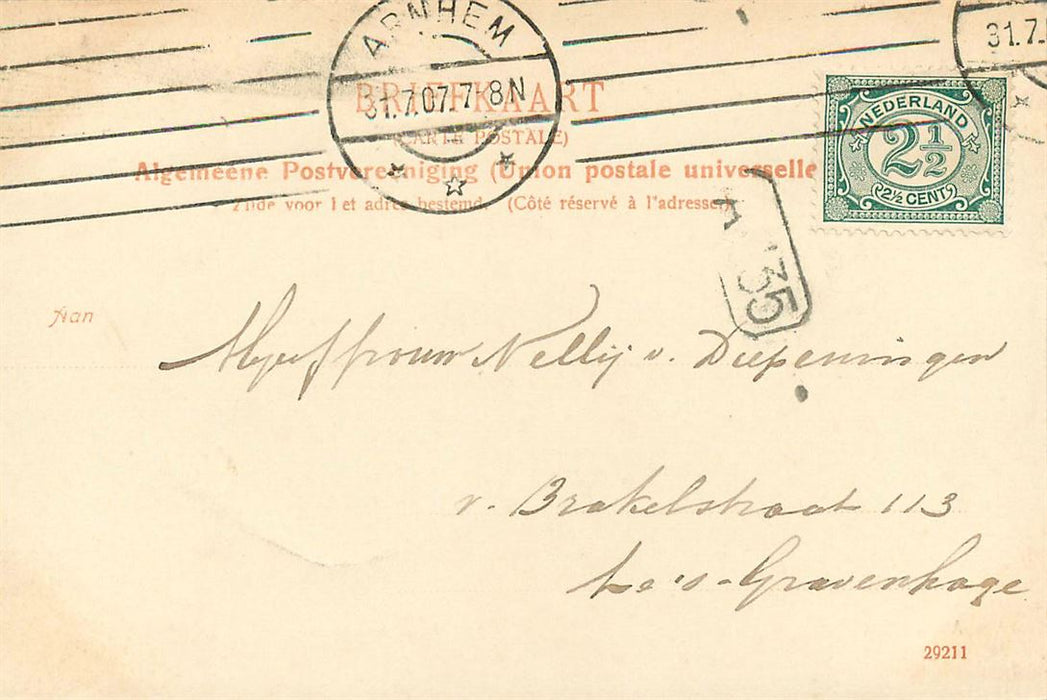 ARNHEM
31.7.07. 7-8N
31.7.
BRIEFKAART
(CARTE POSTALE)
Algemeene Postvereeniging (Union postale universelle
Zijde voor het adres bestemd. (Côté réservé à l'adresse.)
NEDERLAND
2½
2½ CENT
35
Aan
Mejuffrouw Nellij v. Diepeningen
v. Brakelstraat 113
te 's-Gravenhage
29211